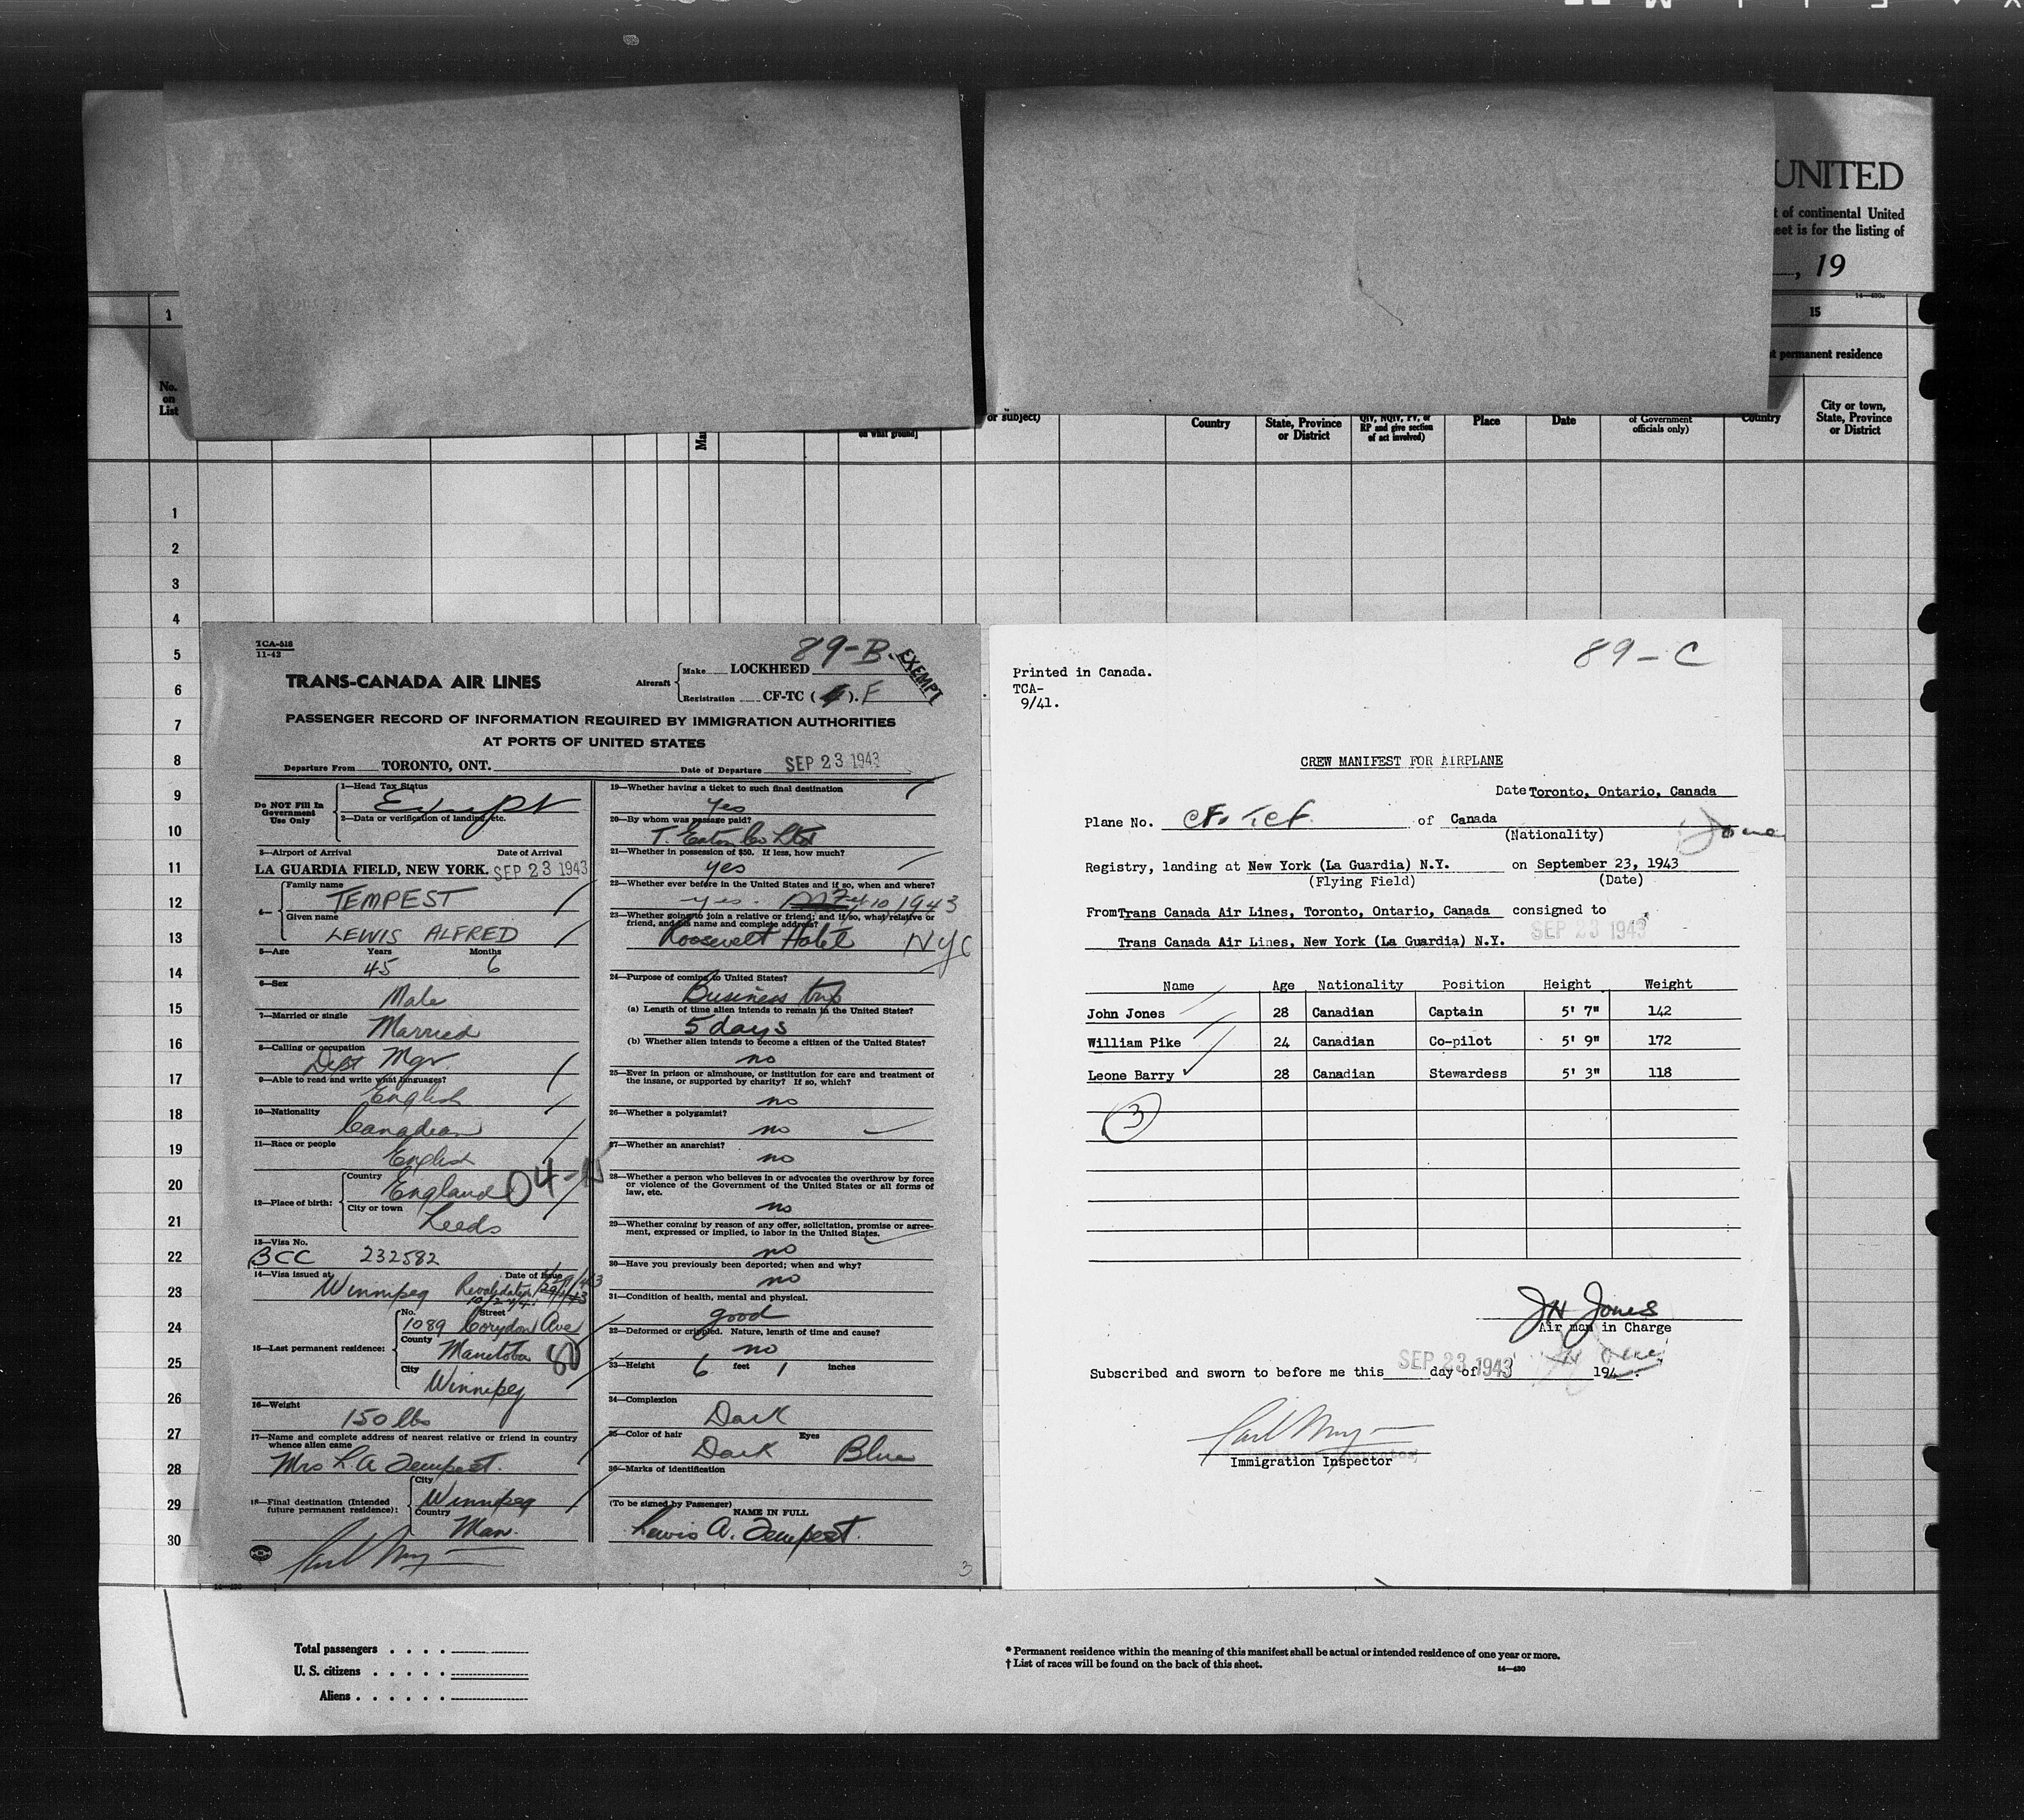 UNITED
t of continental United
eet is for the listing of
, 19
14—430a
1
15
t permanent residence
No.
on
List
on what ground]
or subject)
Country
State, Province
or District
QIV, NQIV, PV, or
RP and give section
of act involved)
Place
Date
of Government
officials only)
Country
City or town,
State, Province
or District
1
2
3
4
5
6
7
8
9
10
11
12
13
14
15
16
17
18
19
20
21
22
23
24
25
26
27
28
29
30
TCA-518
11-42
89-B
EXEMPT
TRANS-CANADA AIR LINES
Aircraft
Make LOCKHEED
Registration CF-TC ( ). F
PASSENGER RECORD OF INFORMATION REQUIRED BY IMMIGRATION AUTHORITIES
AT PORTS OF UNITED STATES
Departure From TORONTO, ONT. Date of Departure SEP 23 1943
Do NOT Fill In
Government
Use Only
1—Head Tax Status
Exempt
2—Data or verification of landing, etc.
3—Airport of Arrival Date of Arrival
LA GUARDIA FIELD, NEW YORK. SEP 23 1943
4—
Family name
TEMPEST
Given name
LEWIS ALFRED
5—Age Years Months
45 6
6—Sex
Male
7—Married or single
Married
8—Calling or occupation
Dept Mgr.
9—Able to read and write what languages?
English
10—Nationality
Canadian
11—Race or people
English
12—Place of birth:
Country
England 04-
City or town
Leeds
13—Visa No.
BCC 232582
14—Visa issued at Date of Issue
Winnipeg Revalidation
15—Last permanent residence:
No. Street
1089 Corydon Ave
County
Manitoba 80
City
Winnipeg
16—Weight
150 lbs
17—Name and complete address of nearest relative or friend in country
whence alien came
Mrs L. A Tempest.
18—Final destination (Intended
future permanent residence):
City
Winnipeg
Country
Man.
19—Whether having a ticket to such final destination
Yes
20—By whom was passage paid?
T. Eaton Co Ltd
21—Whether in possession of $50. If less, how much?
yes
22—Whether ever before in the United States and if so, when and where?
yes. Feb 10 1943
23—Whether going to join a relative or friend; and if so, what relative or
friend, and his name and complete address?
Roosevelt Hotel NYC
24—Purpose of coming to United States?
Business trip
(a) Length of time alien intends to remain in the United States?
5 days
(b) Whether alien intends to become a citizen of the United States?
no
25—Ever in prison or almshouse, or institution for care and treatment of
the insane, or supported by charity? If so, which?
no
26—Whether a polygamist?
no
27—Whether an anarchist?
no
28—Whether a person who believes in or advocates the overthrow by force
or violence of the Government of the United States or all forms of
law, etc.
no
29—Whether coming by reason of any offer, solicitation, promise or agree-
ment, expressed or implied, to labor in the United States.
no
30—Have you previously been deported; when and why?
no
31—Condition of health, mental and physical.
good
32—Deformed or crippled. Nature, length of time and cause?
no
33—Height 6 feet 1 inches
34—Complexion
Dark
35—Color of hair Eyes
Dark Blue
36—Marks of identification
(To be signed by Passenger)
NAME IN FULL
Lewis A. Tempest.
3
89-C
Printed in Canada.
TCA-
9/41.
CREW MANIFEST FOR AIRPLANE
Date Toronto, Ontario, Canada
Plane No. CF-TCF of Canada
(Nationality)
Jones
Registry, landing at New York (La Guardia) N.Y. on September 23, 1943
(Flying Field) (Date)
From Trans Canada Air Lines, Toronto, Ontario, Canada consigned to
Trans Canada Air Lines, New York (La Guardia) N.Y. SEP 23 1943
Name Age Nationality Position Height Weight
John Jones 28 Canadian Captain 5' 7" 142
William Pike 24 Canadian Co-pilot 5' 9" 172
Leone Barry 28 Canadian Stewardess 5' 3" 118
3
JH Jones
Air man in Charge
Subscribed and sworn to before me this SEP 23 1943 day of 194 .
Immigration Inspector
Total passengers
U. S. citizens
Aliens
* Permanent residence within the meaning of this manifest shall be actual or intended residence of one year or more.
† List of races will be found on the back of this sheet.
14—430